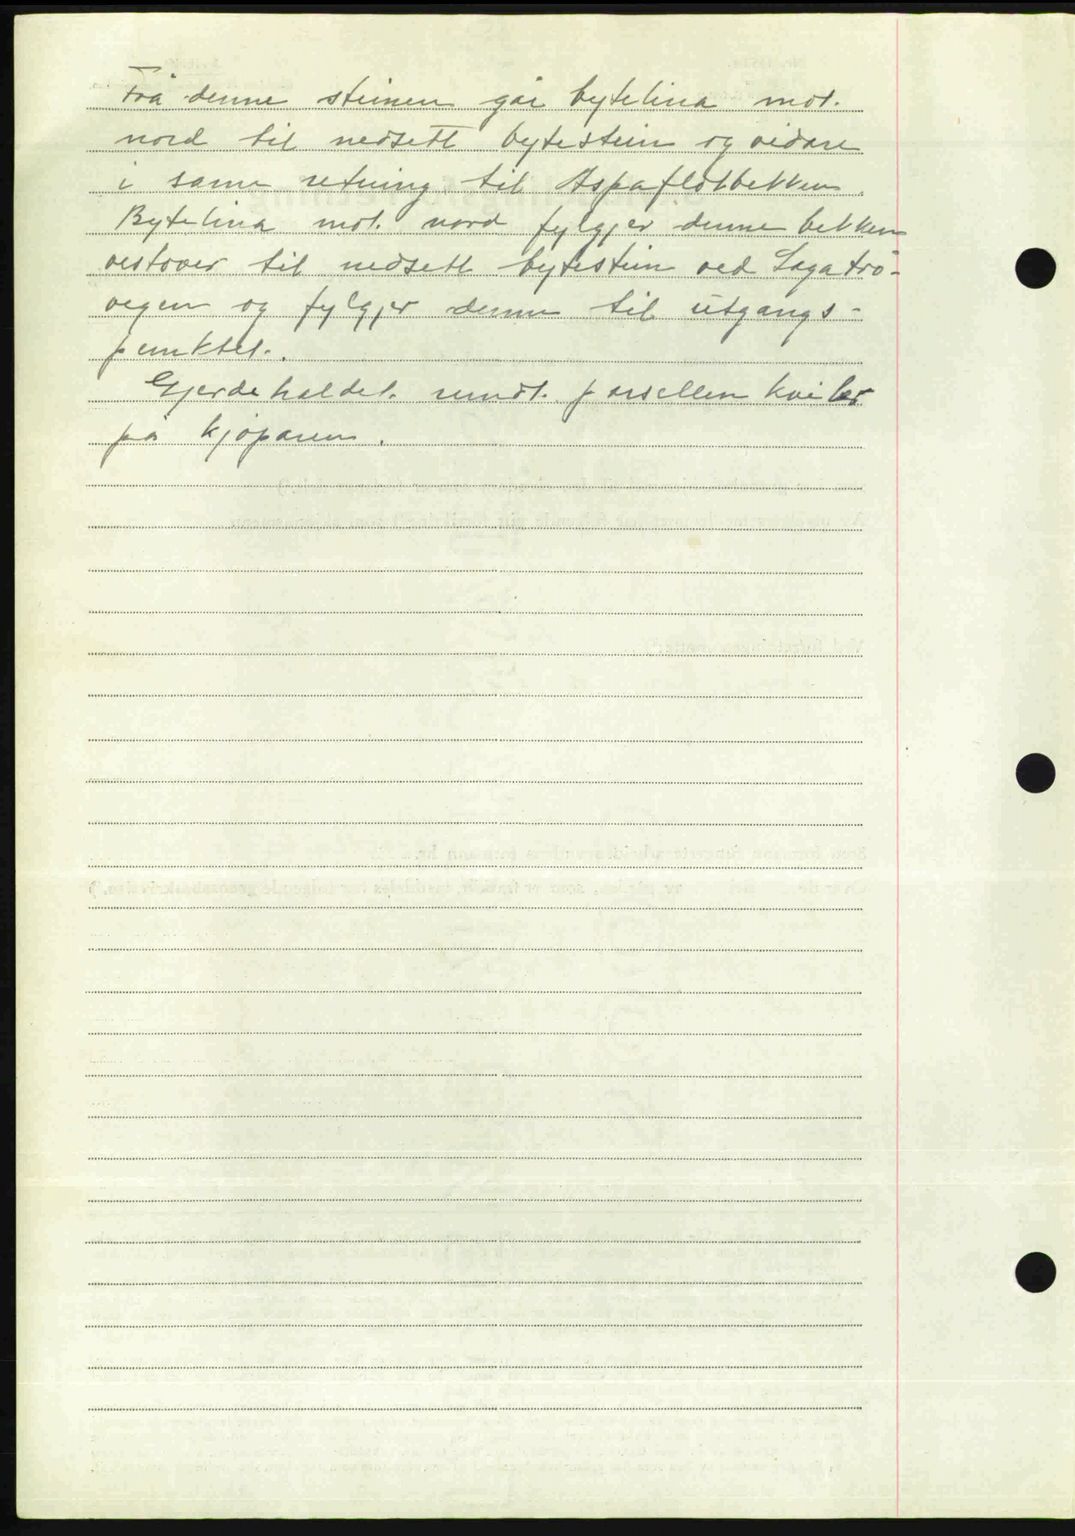 Frå denne steinen går bytelina mot
nord til nedsett bytestein og vidare
i same retning til Aspafløtbekken.
Bytelina mot nord fylgjer denne bekken
vestover til nedsett bytestein ved Sagatrø-
vegen og fylgjer denne til utgangs-
punktet.
Gjerdehaldet rundt parsellen kviler
på kjøparen.